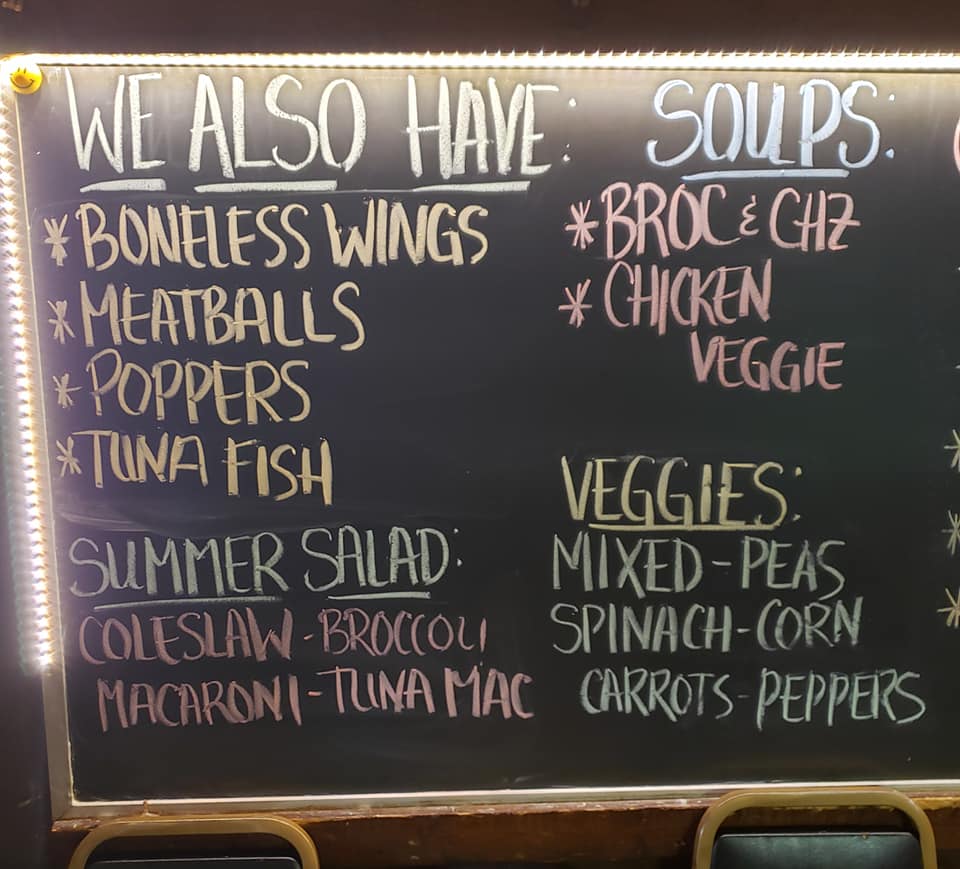 WE ALSO HAVE:
* BONELESS WINGS
* MEATBALLS
* POPPERS
* TUNA FISH
SUMMER SALAD:
COLESLAW - BROCCOLI
MACARONI - TUNA MAC
SOUPS:
* BROC & CHZ
* CHICKEN
VEGGIE
VEGGIES:
MIXED - PEAS
SPINACH - CORN
CARROTS - PEPPERS